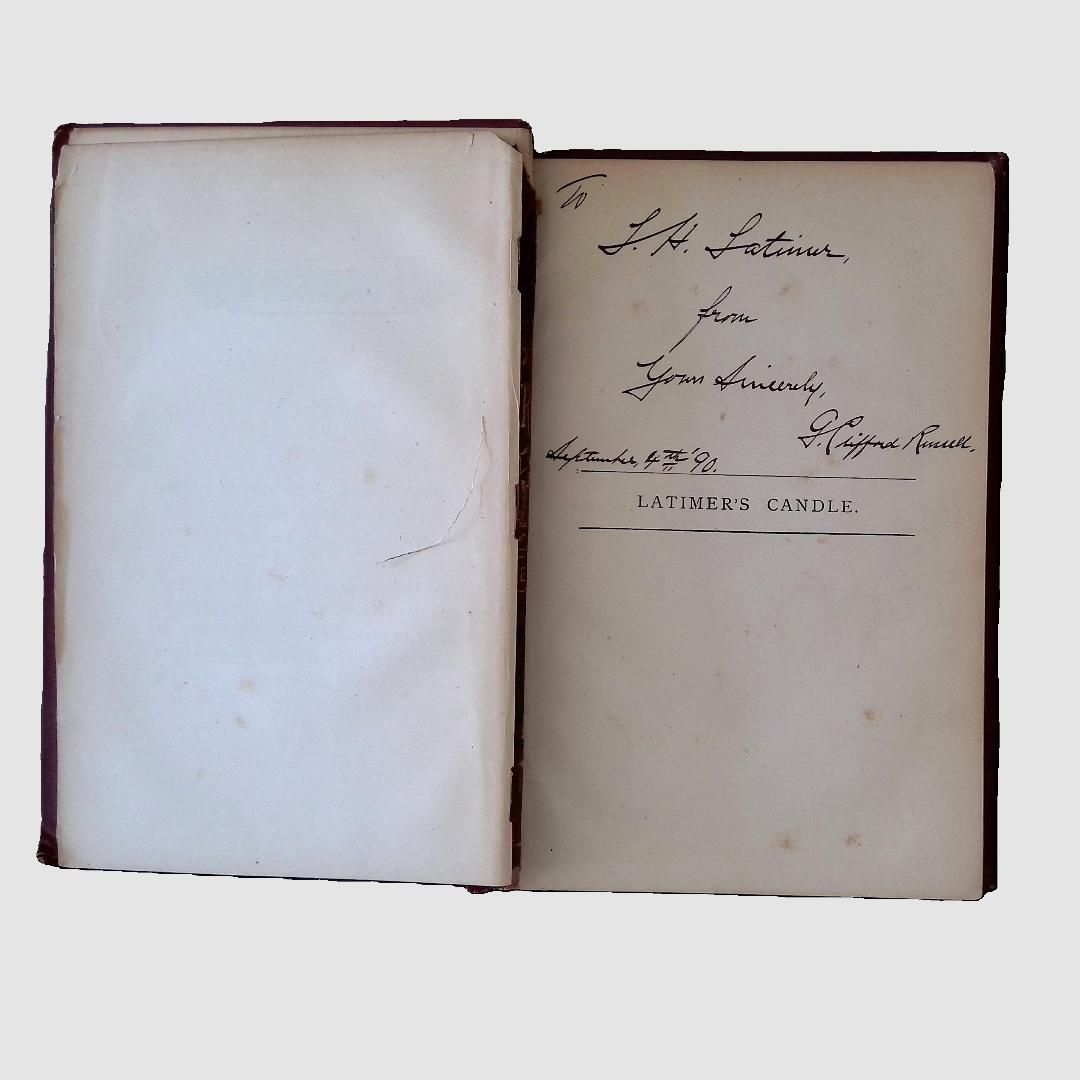 To
L. H. Latimer,
from
Yours Sincerely,
G. Clifford Russell.
September, 4th '90.
LATIMER'S CANDLE.